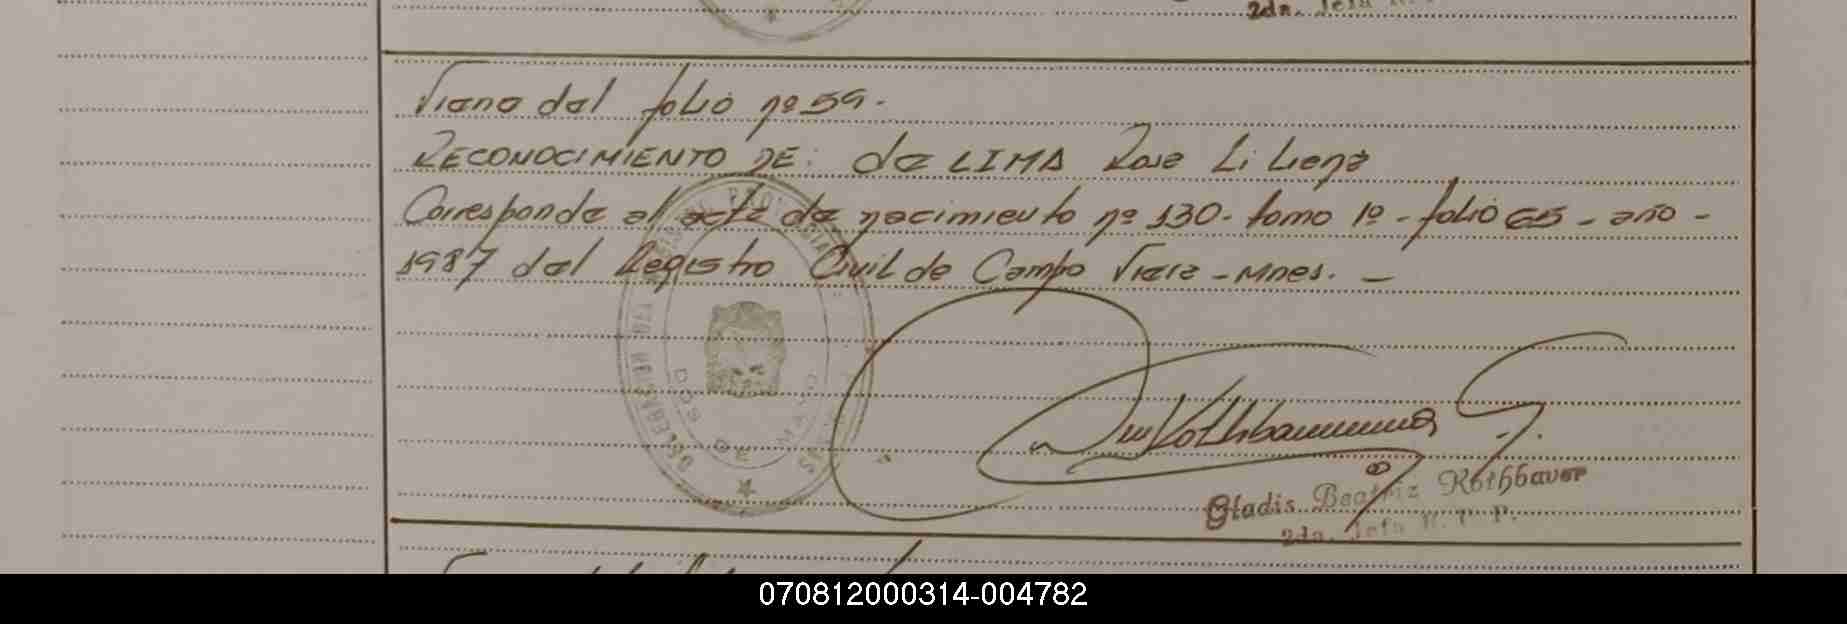 2da. Jefa
Viene del folio nº 59.
RECONOCIMIENTO DE: de LIMA Rosa Liliana
Corresponde al acta de nacimiento nº 130- tomo 1º - folio 65 - año -
1987 del Registro Civil de Campo Viera - Mnes. -
DOS DE MAYO
Gladis Beatriz Rothbauer
2da. Jefa R. P. P.
070812000314-004782